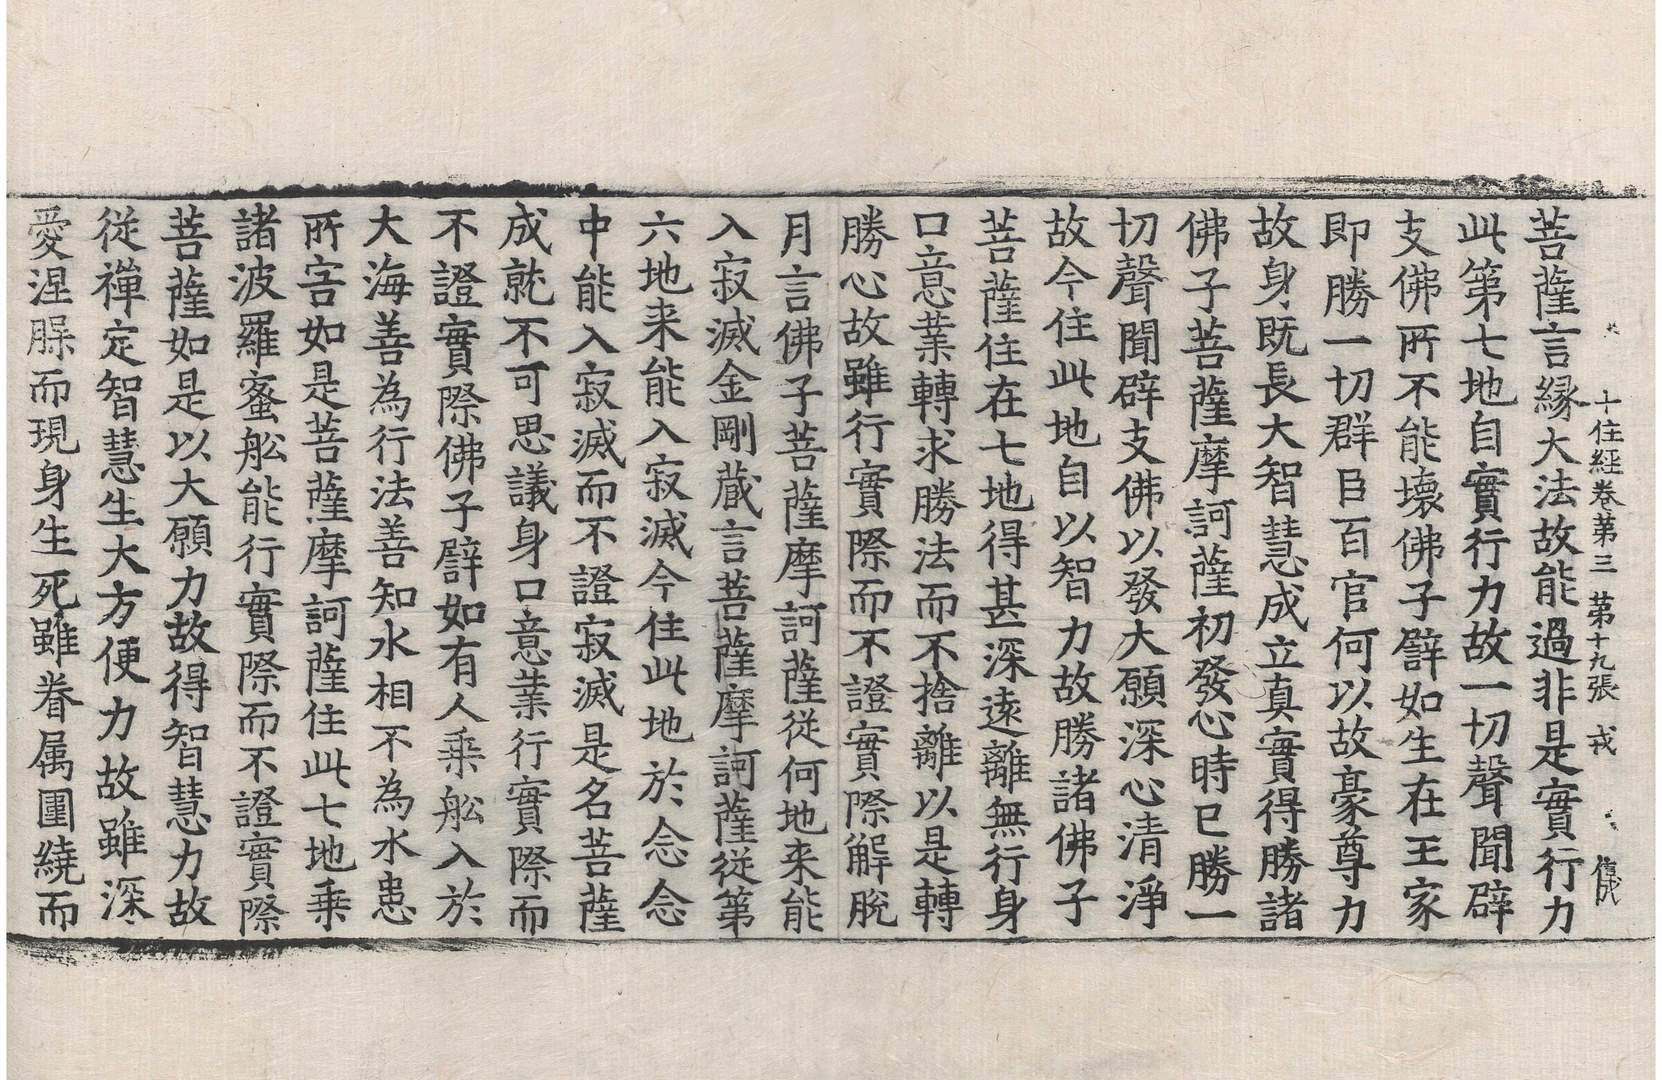 十住經卷第三 第十九張 戎
菩薩言緣大法故能過非是實行力
此第七地自實行力故一切聲聞辟
支佛所不能壞佛子譬如生在王家
即勝一切群臣百官何以故豪尊力
故身既長大智慧成立真實得勝諸
佛子菩薩摩訶薩初發心時已勝一
切聲聞辟支佛以發大願深心清淨
故今住此地自以智力故勝諸佛子
菩薩住在七地得甚深遠離無行身
口意業轉求勝法而不捨離以是轉
勝心故雖行實際而不證實際解脫
月言佛子菩薩摩訶薩從何地来能
入寂滅金剛藏言菩薩摩訶薩從第
六地来能入寂滅今住此地於念念
中能入寂滅而不證寂滅是名菩薩
成就不可思議身口意業行實際而
不證實際佛子譬如有人乘舩入於
大海善為行法善知水相不為水患
所害如是菩薩摩訶薩住此七地乘
諸波羅蜜舩能行實際而不證實際
菩薩如是以大願力故得智慧力故
從禪定智慧生大方便力故雖深
愛涅槃而現身生死雖眷属圍繞而